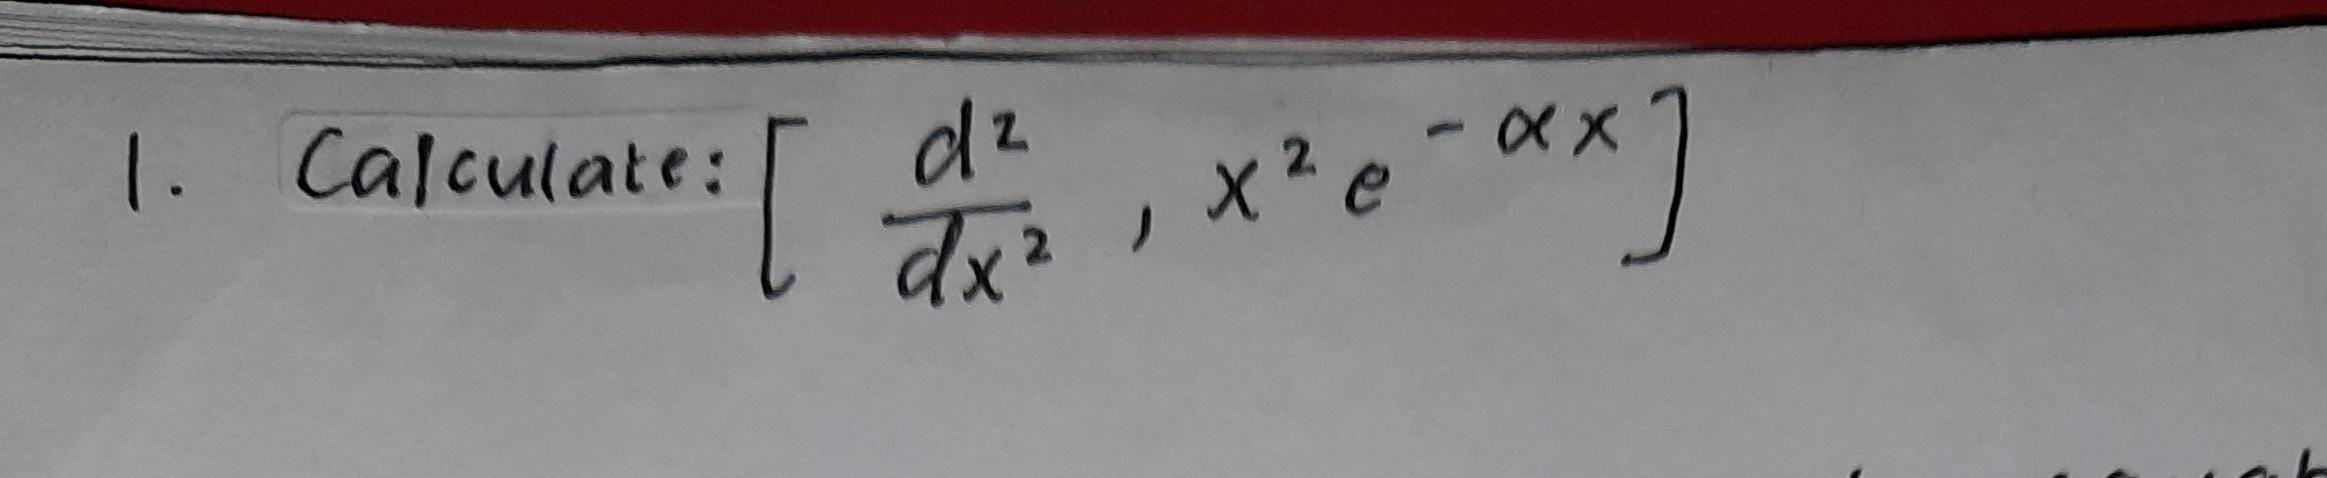 1. Calculate: [ d²/dx² , x² e^{-αx} ]